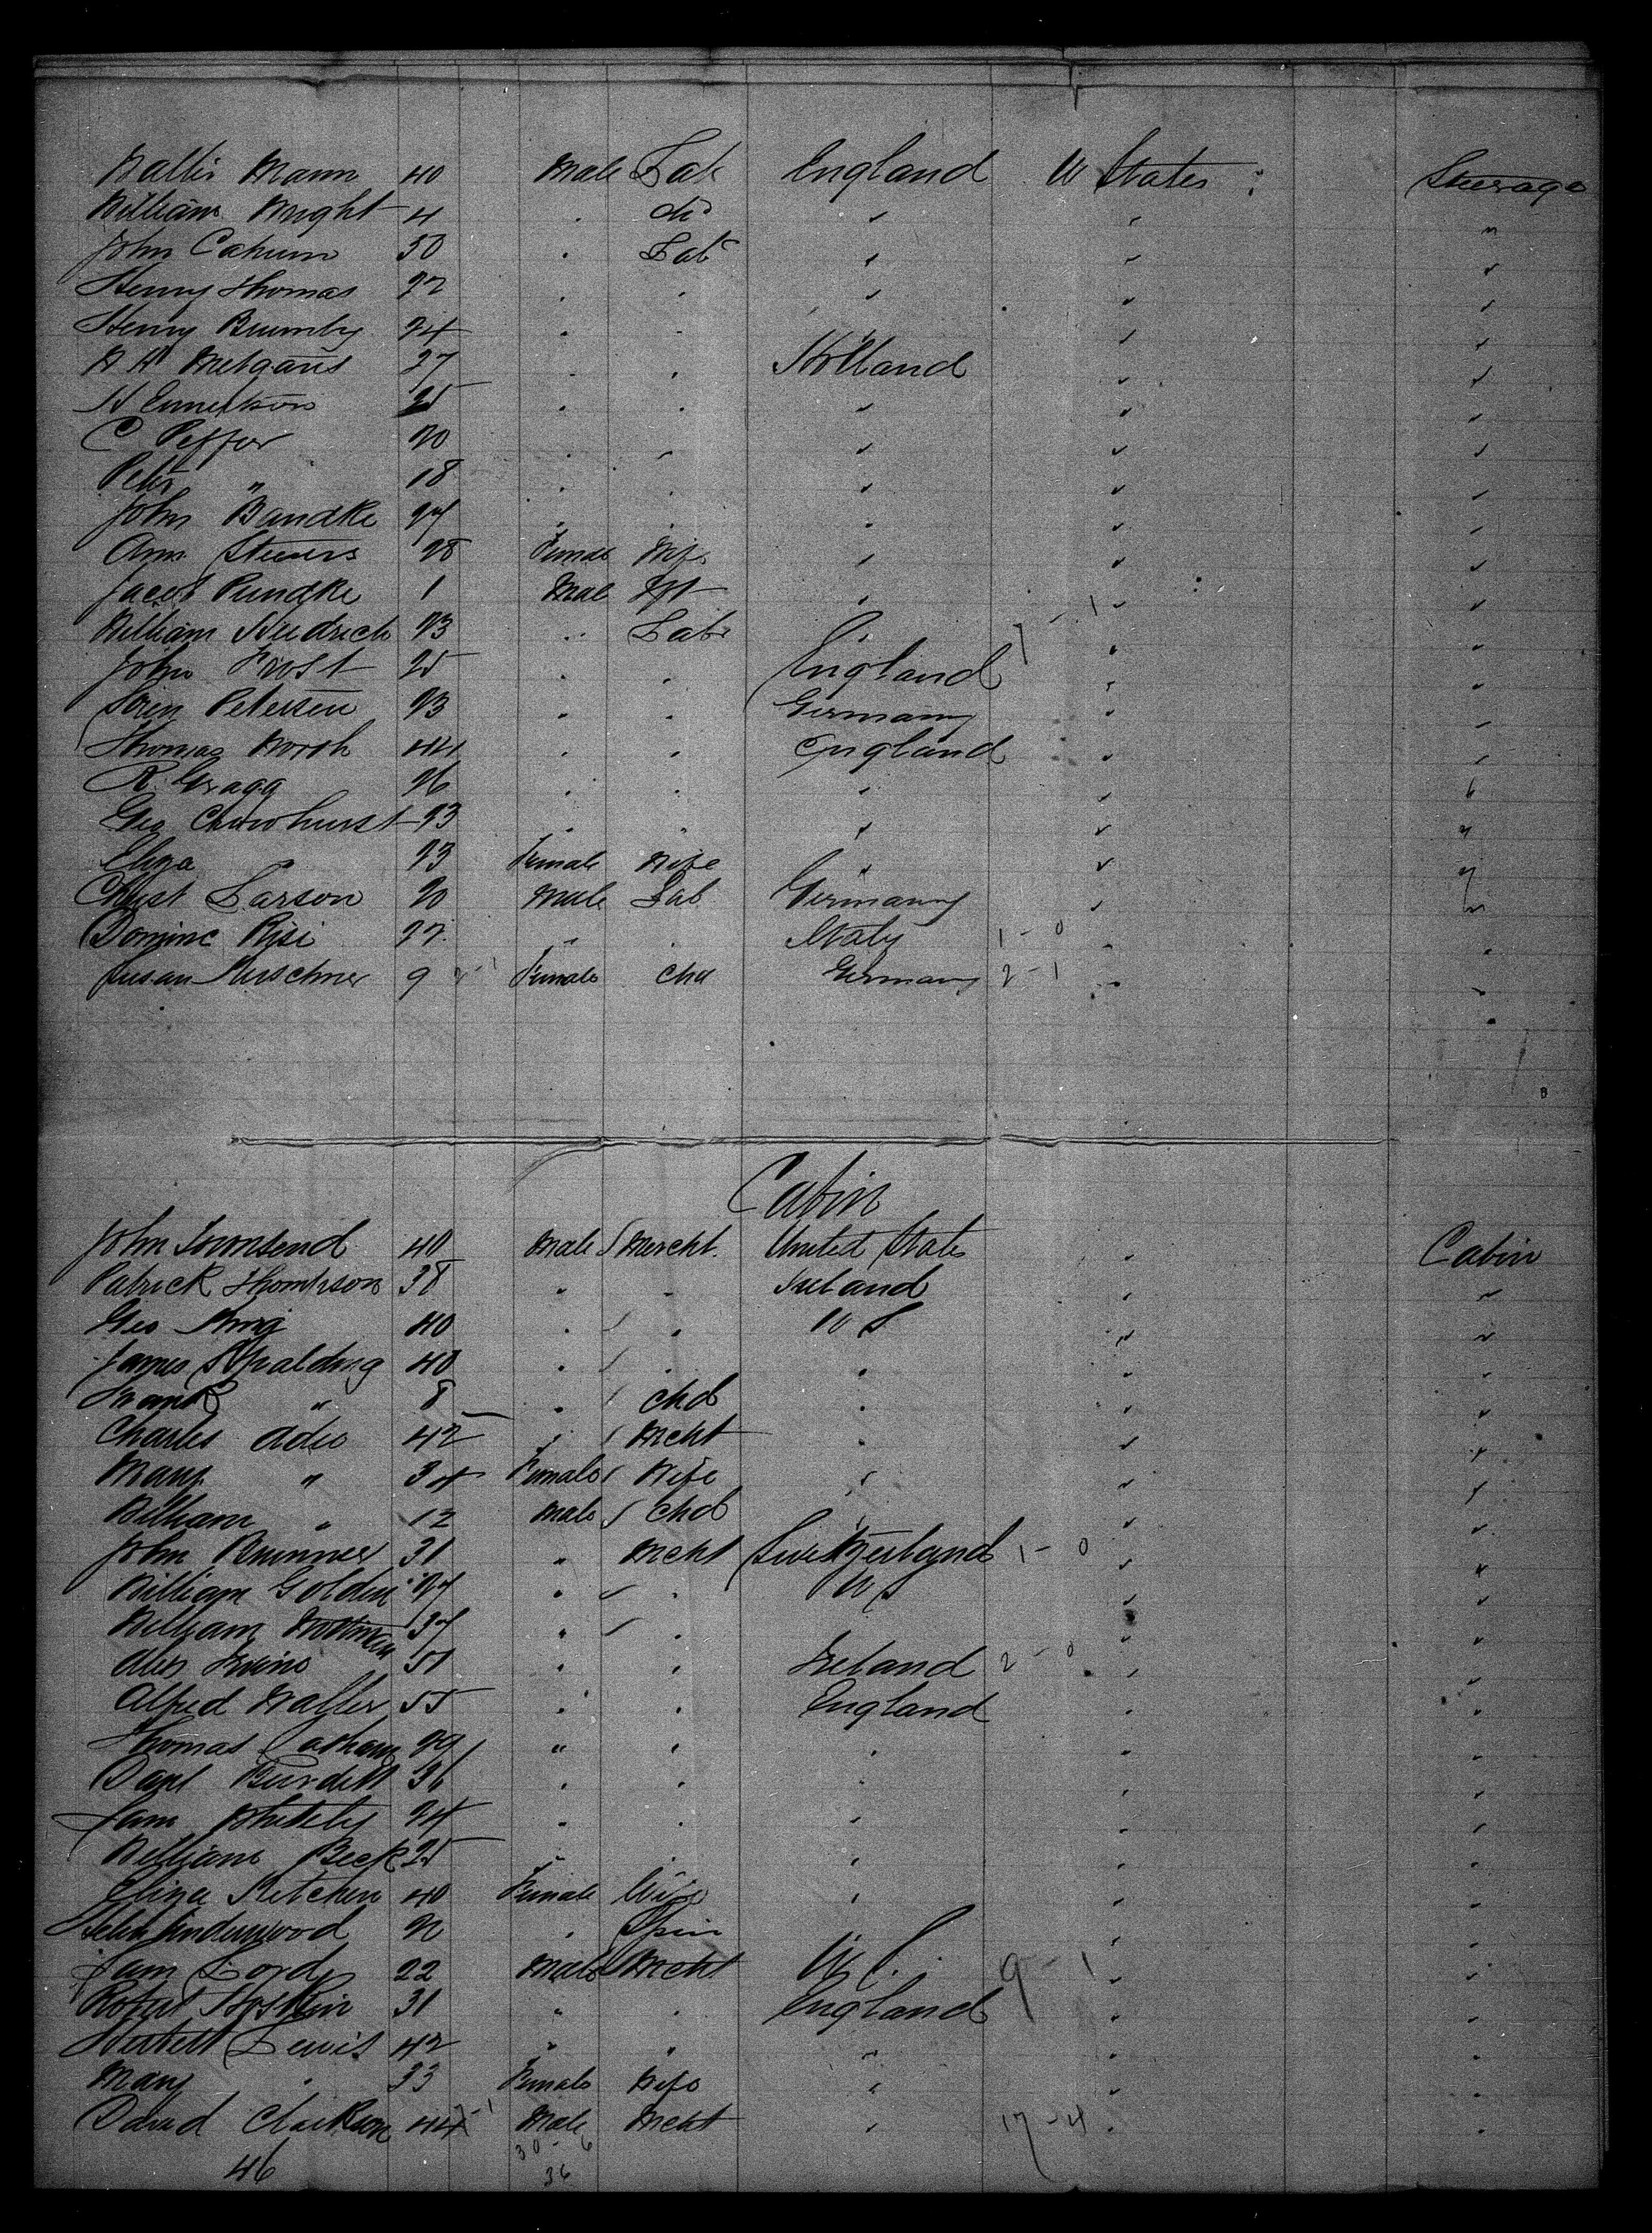 Mann 40 Male Lab England U States Steerage
William Wright 4 do
John Cahum 50 Lab
Henry Thomas 22
Henry Brumby 24
27 Holland
25
C Peffer 20
Peter " 18
John Bandke 24
Ann Steuers 28 Female Wife
Jacob Pundke 1 Male Inft
William Heidrich 23 Lab 7 - 1
John Frost 25 England
Soren Petersen 23 Germany
Thomas North 44 England
R. Gragg 26
Geo Chowhurst 23
Eliza 23 Female Wife
Christ Larson 20 Male Lab Germany
Dominc Risi 22 Italy 1 - 0
Susan Kirschner 9 Female Chd Germany 2 - 1
Cabin
John Townsend 40 Male Mercht. United States Cabin
Patrick Thompson 38 " " Ireland
Geo King 40 U S
James Spalding 40
Frank " 8 Chd
Charles Adie 42 Mcht
Mary " 34 Female Wife
William " 12 Male Chd
John Brunner 31 " Mcht Switzerland 1 - 0
William Goldin 24 U S
William 34
Alex 51 Ireland 2 - 0
Alfred Waller 55 England
Thomas Latham 29 "
Danl Burdett 36
Sam Whitely 24
William Beck 25
Eliza Kitchen 40 Female Wife
Helen Underwood 21 Spin
Sam Lord 22 Male Mcht U S. 9 - 1
Robert Hoskin 31 " England
Herbert Lewis 42 "
Mary " 33 Female Wife
David Clarkson 44 Male Mcht 17 - 4
46 30 - 6
36